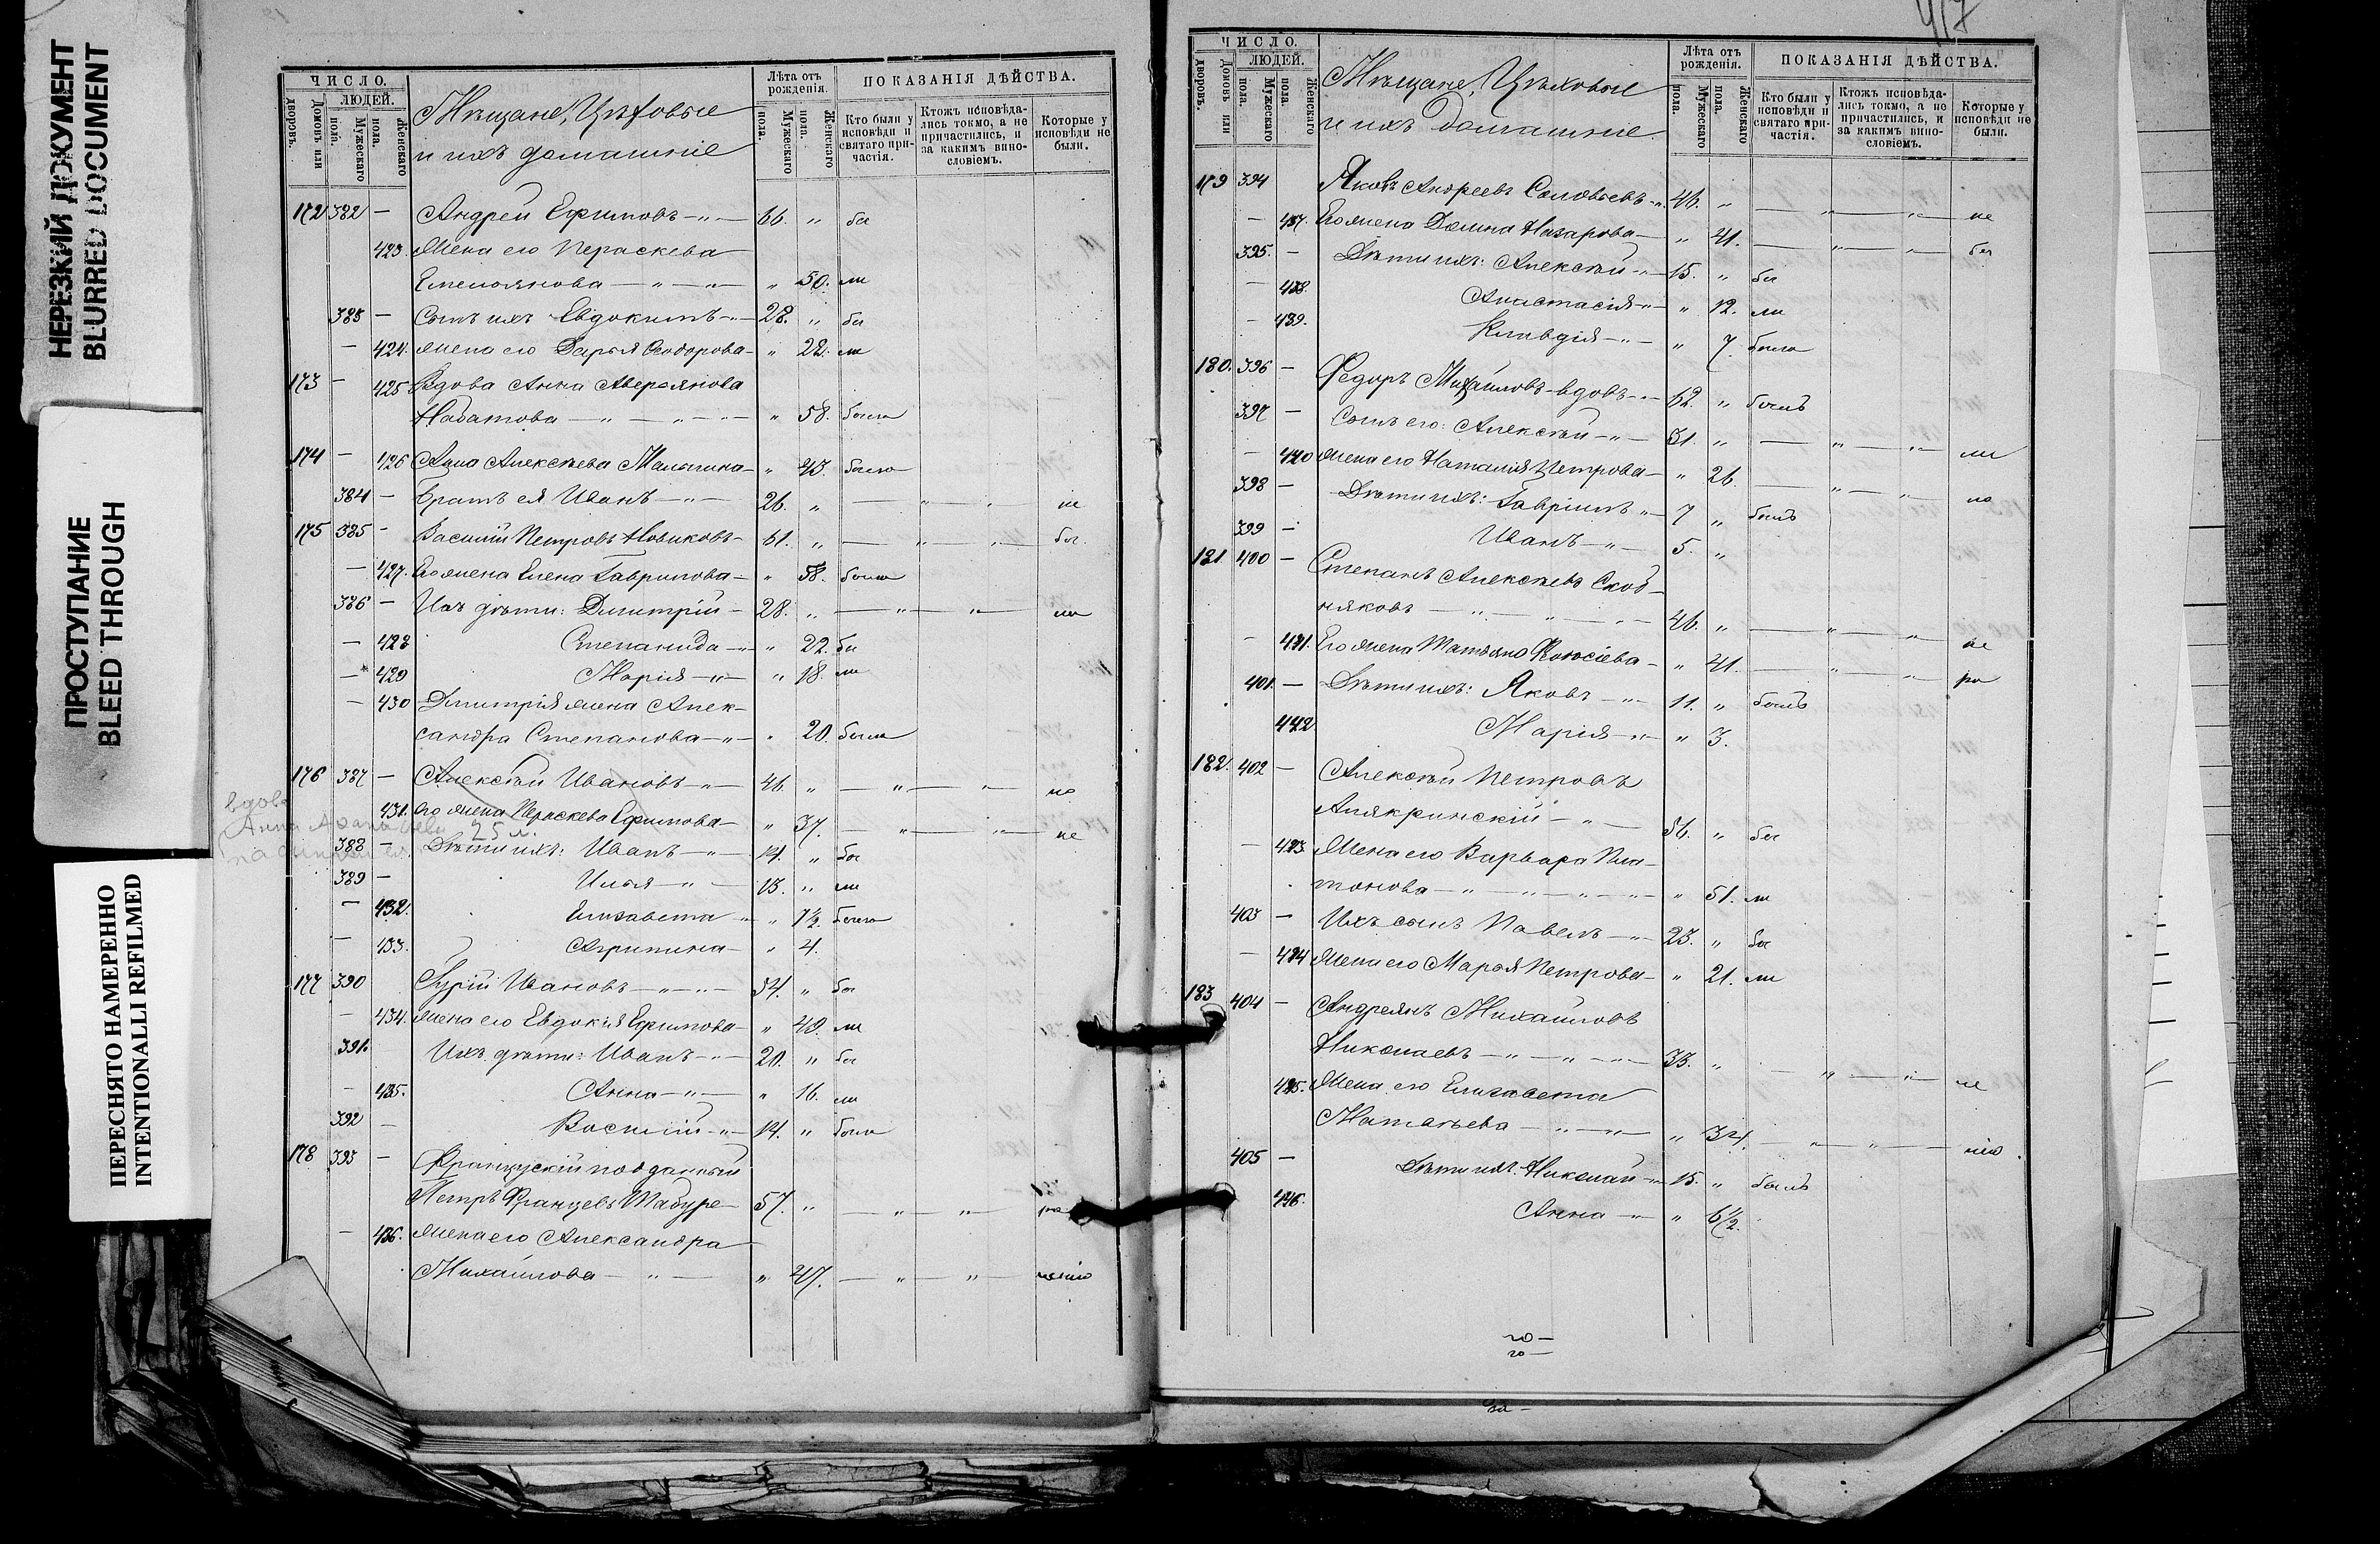 НЕРЕЗКИЙ ДОКУМЕНТ
BLURRED DOCUMENT
ПРОСТУПАНИЕ
BLEED THROUGH
ПЕРЕСНЯТО НАМЕРЕННО
INTENTIONALLI REFILMED
ЧИСЛО.
ЛЮДЕЙ.
Домовъ или дворовъ.
Мужескаго пола.
Женскаго пола.
Мѣщане, Цѣховые
и ихъ домашніе
Лѣта отъ рожденія.
Мужескаго пола.
Женскаго пола.
ПОКАЗАНІЯ ДѢЙСТВА.
Кто были у исповѣди и святаго причастія.
Ктожъ исповѣдались токмо, а не причастились, и за какимъ винословіемъ.
Которые у исповѣди не были.
172 382 — Андрей Ефимовъ — „ — 66. „ бы
423. Жена его Пераскева
Емельянова — „ — „ — „ 50. ли
383 — Сынъ ихъ Евдокимъ — „ — 28. „ бы
— 424. Жена его Дарья Ѳеодорова — „ 22. ли
173 — 425 Вдова Анна Аверьянова
Набатова — „ — „ — „ 58. была
174 — 426 Анна Алексѣева Малыгина — „ 43 была
384 — Братъ ея Иванъ — „ — 26. „ — „ — „ — не
175 385 — Василій Петровъ Новиковъ — 61. „ — „ — „ — бы
— 427. Его жена Елена Гаврилова — „ 58. была
386 — Ихъ дѣти: Дмитрій — 28. „ — „ — „ — ли
— 428 Степанида — „ — „ 22. бы
— 429 Марія — „ — „ 18. ли
— 430 Дмитрія жена Алек-
сандра Степанова — „ — „ 20. была
176 387 — Алексѣй Ивановъ — „ — 46. „ — „ — „ — но
431. Его жена Пераскева Ефимова — „ 37. — „ — „ — не
вдова
Анна
25 л.
388 — Дѣти ихъ: Иванъ — „ — 14. „ бы
389 — Илья — „ — 13. „ ли
— 432. Елизавета — „ — „ 7½. была
— 433. Агрипина — „ 4.
177 390 Гурій Ивановъ — „ — „ — 54. „ бы
— 434. Жена его Евдокія Ефимова — „ 49. ли
391. Ихъ дѣти: Иванъ — „ — 20. „ бы
— 435. Анна — „ — „ 16. ли
392 — Василій — „ — 14. „ была
178 393 — Французскій подданный
Петръ Францевъ Табуре — 57. „ — „ — „ —
— 436. Жена его Александра
Михайлова — „ — „ 47. — „ — „ — нію
417
ЧИСЛО.
ЛЮДЕЙ.
Домовъ или дворовъ.
Мужескаго пола.
Женскаго пола.
Мѣщане, Цѣховые
и ихъ домашніе.
Лѣта отъ рожденія.
Мужескаго пола.
Женскаго пола.
ПОКАЗАНІЯ ДѢЙСТВА.
Кто были у исповѣди и святаго причастія.
Ктожъ исповѣдались токмо, а не причастились, и за какимъ винословіемъ.
Которые у исповѣди не были.
179 394 Яковъ Андреевъ Соловьевъ — „ 46. „ — „ — „ — не
— 437. Его жена Домна Назарова — „ 41. — „ — „ — бы
395. — Дѣти ихъ: Алексѣй — „ — 15. „ бы
— 438. Анастасія — „ — „ 12. ли
— 439. Клавдія — „ — „ 7. была
180. 396 — Ѳедоръ Михайловъ вдовъ — „ — 62. „ былъ
397 — Сынъ его: Алексѣй — „ — 31. „ — „ — „ — ли
— 440 Жена его Наталія Петрова — „ 26. — „ — „ — по
398 — Дѣти ихъ: Гавріилъ — „ — 7 „ былъ
399 — Иванъ — „ — 5. „
181 400 — Степанъ Алексѣевъ Скоб-
няковъ — „ — „ — 46. „ — „ — „ — не
— 441. Его жена Татьяна — „ 41. — „ — „ — ра
401. — Дѣти ихъ: Яковъ — „ — 11. „ былъ
442 Марія — „ — „ 3.
182. 402 — Алексѣй Петровъ
Алякринскій — „ — 56. „ бы
— 443. Жена его Варвара Пла-
тонова — „ — „ — „ — „ 51. ли
403 — Ихъ сынъ Павелъ — „ — 23. „ бы
— 444 Жена его Марья Петрова — „ 21. ли
183 404 — Андреянъ Михайловъ
Николаевъ — „ — „ — „ — 33. „ — „ — „ — не
445. Жена его Елизавета
Матвѣева — „ — „ — „ 34. — „ — „ — нію.
405 — Дѣти ихъ: Николай — „ — 15. „ былъ
446. Анна — „ — „ 6½.